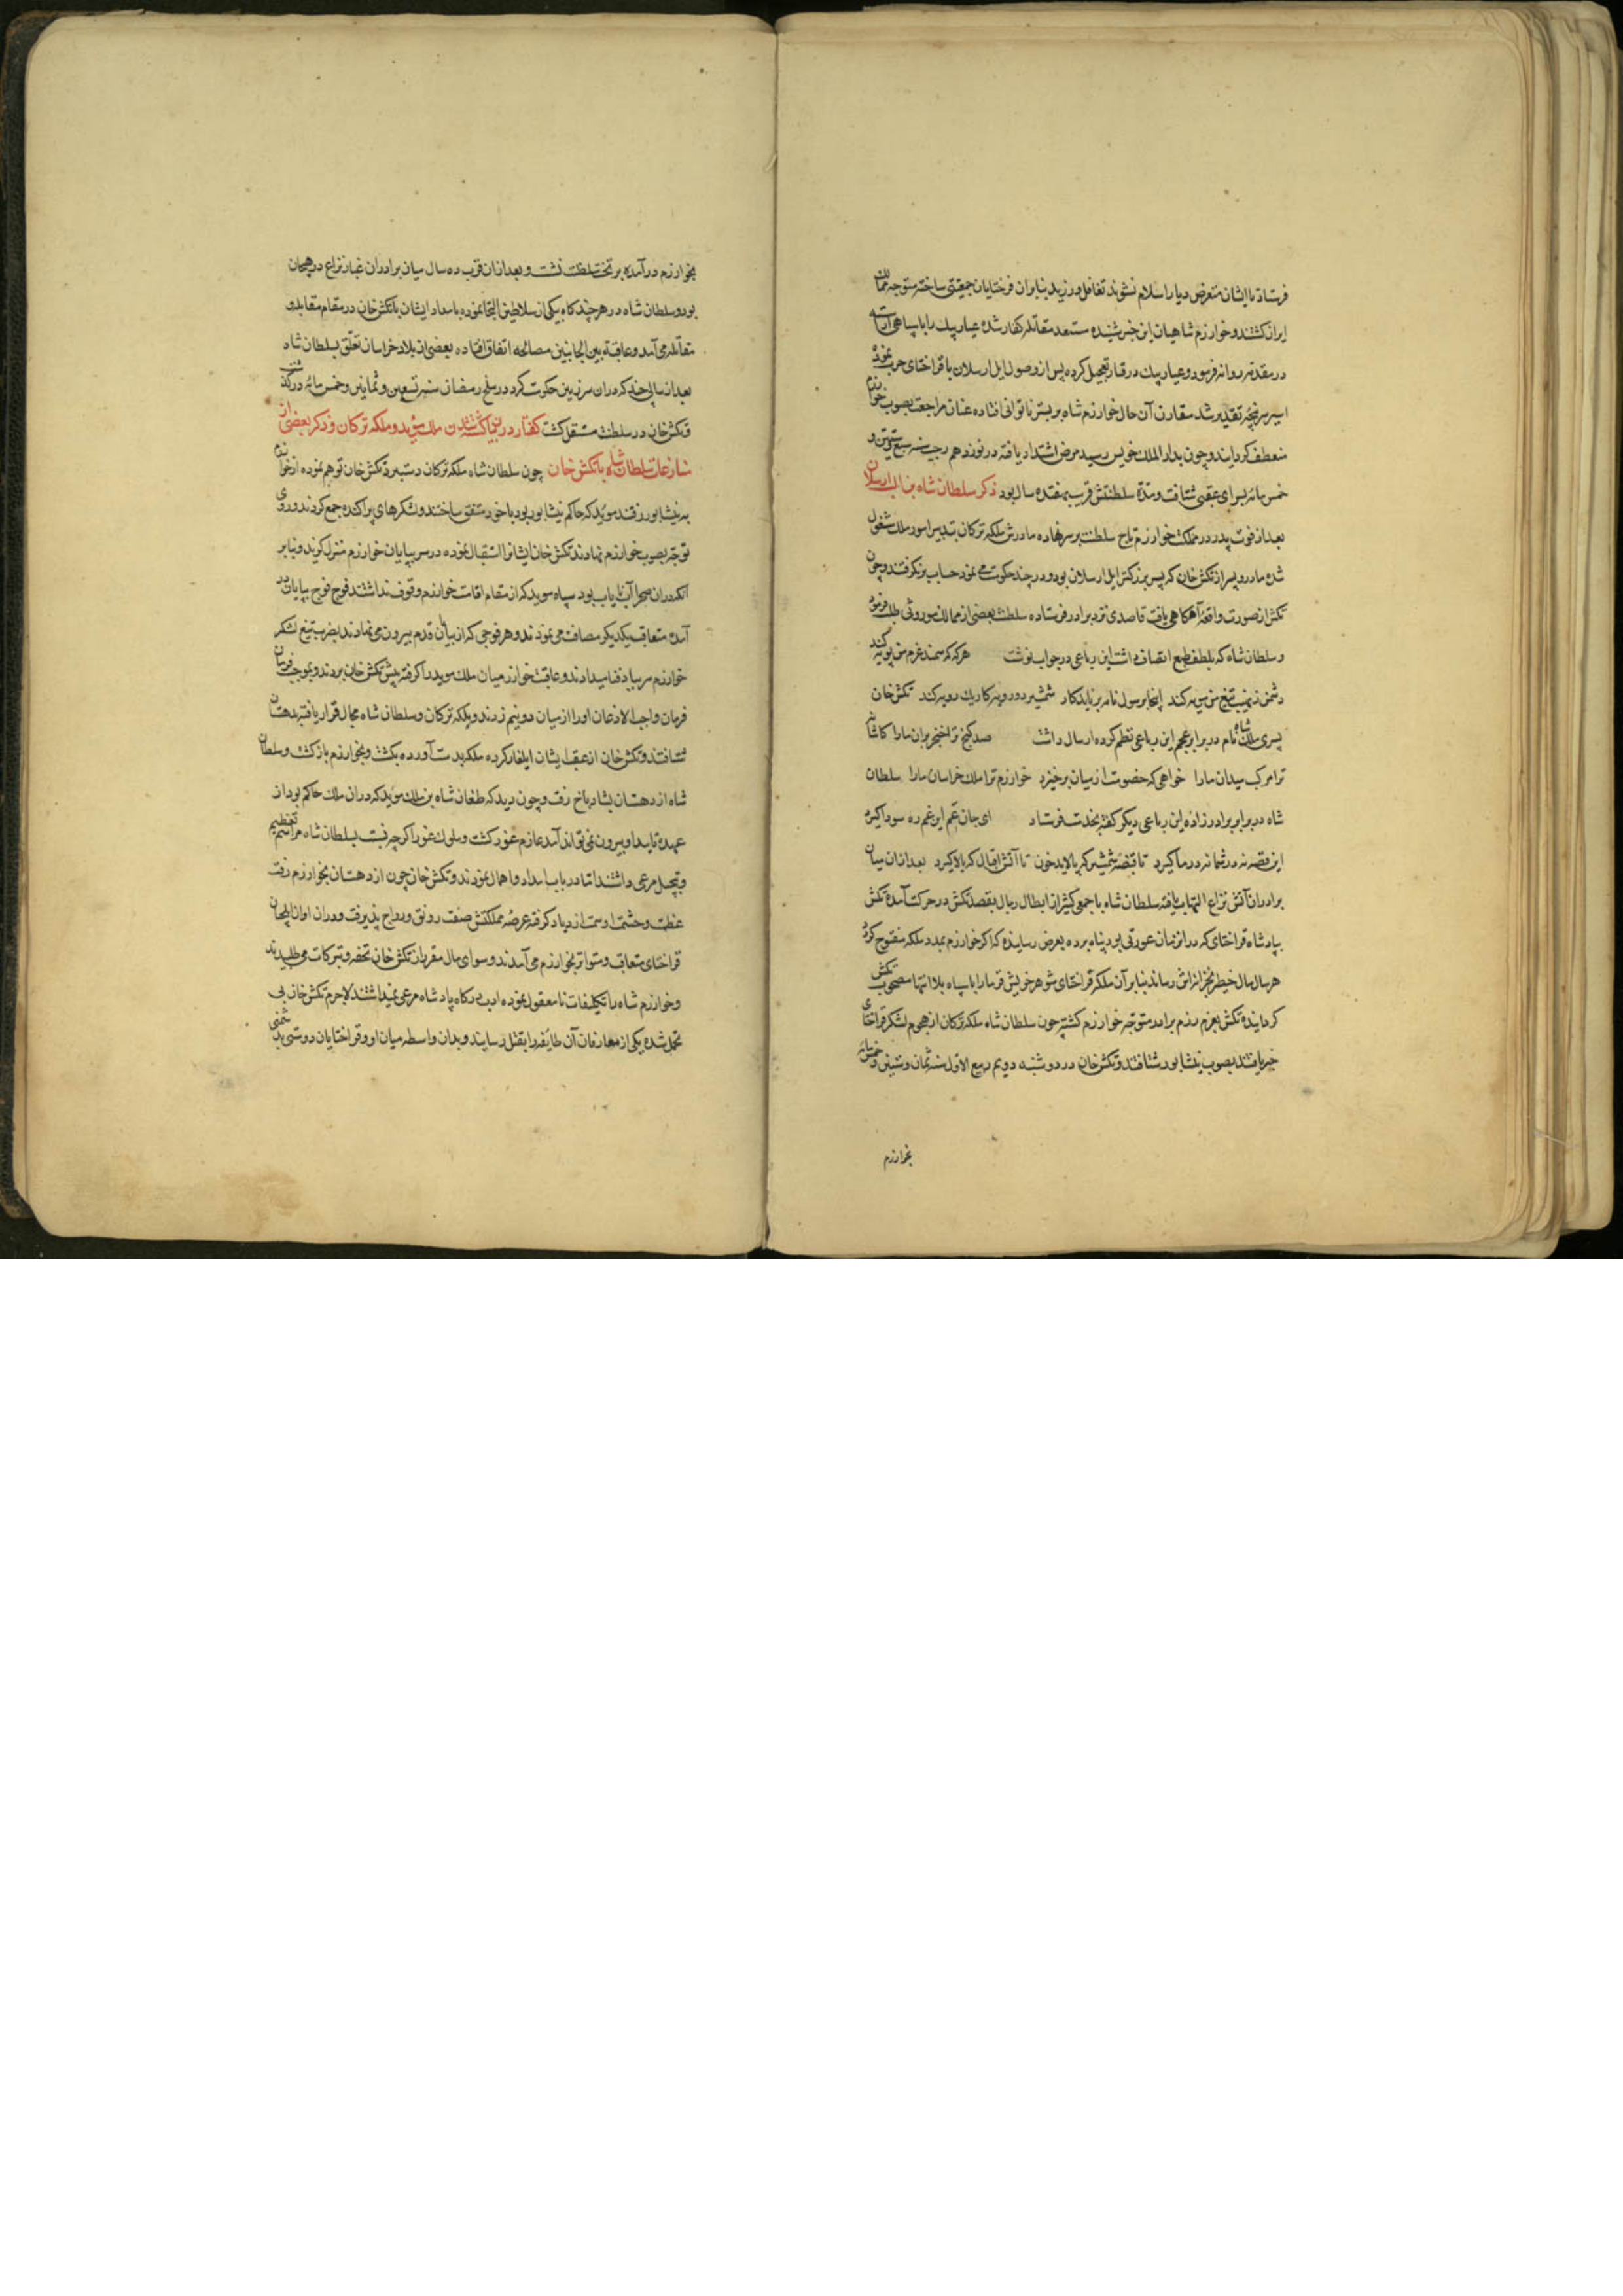 فرستاد تا ایشان متعرض دیار اسلام نشوند تغافل ورزید بنابران قرختایان جمعیتی ساخته متوجه ممالک
ایران کشتند و خوارزم شاه این خبر شنیده مستعد مقاتله کفار شده عیار بیک را با سپاهی آراسته
در مقدمه روانه فرمود و عیار بیک در قتال تعجیل کرده پس از وصول ایل ارسلان با قراختای حرب نموده
اسیر سرپنجه تقدیر شد مقارن آن حال خوارزم شاه بر بستر ناتوانی افتاده عنان مراجعت بصوب خوارزم
منعطف کردانید و چون بدار الملک خویش رسید مرض اشتداد یافته در نوزدهم رجب سنه سبع و ستین و
خمس مائه بسرای عقبی شتافت و مدة سلطنتش قریب بهفده سال بود ذکر سلطان شاه بن ایل ارسلان
بعد از فوت پدر در مملکت خوارزم تاج سلطنت بر سر نهاده مادرش ملکه ترکان بتدبیر امور ملک مشغول
شد و مادر و پسر از تکش خان که پسر بزرکتر ایل ارسلان بود و در جند حکومت می نمود حساب برنکرفتند و چون
تکش از صورت واقعه آکاهی یافت قاصدی نزد برادر فرستاده سلطنت بعضی از ممالک موروثی طلب فرمود
و سلطان شاه که بلطف طبع اتصاف داشت این رباعی در جواب نوشت هرکه که سمند عزم من پویه کند
دشمن ز نهیب تیغ من مویه کند اینجا برسول و نامه برناید کار شمشیر دو رویه کار یک رویه کند تکش خان
پسری ملک شاه نام در برابر عم این رباعی نظم کرده ارسال داشت صد کنج ترا خنجر بران مارا کاشانه
ترا مرکب میدان مارا خواهی که خصومت از میان برخیزد خوارزم ترا ملک خراسان مارا سلطان
شاه در برابر برادرزاده این رباعی دیکر کفته بخدمت فرستاد ای جان عم این غم ره سودا کیرد
این قصه نه در شما نه در ما کیرد تا قبضه شمشیر که پالاید خون تا آتش اقبال که بالا کیرد بعد از ان میان
برادران آتش نزاع التهاب یافته سلطان شاه با جمعی کثیر از ابطال رجال بقصد تکش در حرکت آمد و تکش
بپادشاه قراختای که در ان زمان عورتی بود پناه برده بعرض رسانید که اکر خوارزم بمدد ملکه مفتوح کردد
هر سال مال خطیر بخزانه اش رساند بنابر آن ملکه قراختای شوهر خویش قرما را با سپاه بلا انتها مصحوب تکش
کردانید و تکش بعزم رزم برادر متوجه خوارزم کشته چون سلطان شاه و ملکه ترکان از هجوم لشکر قراختای
خبر یافتند بصوب نیشابور شتافتند و تکش خان در دوشنبه دویم ربیع الاول سنه ثمان و ستین و خمس مائه
بخوارزم
بخوارزم درآمده بر تخت سلطنت نشست و بعد از ان قریب ده سال میان برادران غبار نزاع در هیجان
بود و سلطان شاه در هر چند کاه بیکی از سلاطین التجا نموده بامداد ایشان با تکش خان در مقام مقابله و
مقاتله می آمد و عاقبة بین الجانبین مصالحه اتفاق افتاده بعضی از بلاد خراسان تعلق بسلطان شاه
بعد از سالی چند که دران سرزمین حکومت کرد در سلخ رمضان سنه تسع و ثمانین و خمس مائه درکذشت
و تکش خان در سلطنت مستقل کشت کفتار در بیان کشته شدن ملک مؤید و ملکه ترکان و ذکر بعضی از
منازعات سلطان شاه با تکش خان چون سلطان شاه و ملکه ترکان از دستبرد تکش خان توهم نموده از خوارزم
به نیشابور رفتند مؤید که حاکم نیشابور بود با خود متفق ساختند و لشکرهای پراکنده جمع کردند و روی
توجه بصوب خوارزم نهادند تکش خان ایشانرا استقبال نموده در سر بیابان خوارزم منزل کزید و بنابر
آنکه دران صحرا آب نایاب بود سپاه مؤید که از مقام اقامت خوارزم وقوف نداشتند فوج فوج بپایان
آمده متعاقب یکدیکر مصاف می نمودند و هر فوجی که از بیابان قدم بیرون می نهادند بضرب تیغ لشکر
خوارزم سر بباد فنا میدادند و عاقبت خوارزمیان ملک مؤید را کرفته پیش تکش خان بردند و بموجب فرمان
فرمان واجب الاذعان اورا از میان دو نیم زدند و ملکه ترکان و سلطان شاه مجال فرار یافته بدهستان
شتافتند و تکش خان از عقب ایشان ایلغار کرده ملکه بدست آورده بکشت و بخوارزم بازکشت و سلطان
شاه از دهستان بشادیاخ رفت و چون دید که طغان شاه بن ملک مؤید که دران ملک حاکم بود از
عهده امداد او بیرون نمی تواند آمد عازم غور کشت و ملوک غور اکرچه نسبت بسلطان شاه مراسم تعظیم
و تبجیل مرعی داشتند اما در باب امداد اهمال نمودند و تکش خان چون از دهستان بخوارزم رفت
عظمت و حشمت او سمت ازدیاد کرفته عرصه مملکتش صفت رونق و رواج پذیرفت و دران اوان ایلچیان
قراختای متعاقب و متواتر بخوارزم می آمدند و سوای مال مقرر از تکش خان تحفه و تبرکات می طلبیدند
و خوارزم شاه را تکلیفات نامعقول نموده ادب درکاه پادشاه مرعی نمیداشتند لاجرم تکش خان بی
تحمل شده یکی از معارفان آن طایفه را بقتل رسانید و بدان واسطه میان او و قراختایان دوستی بدشمنی